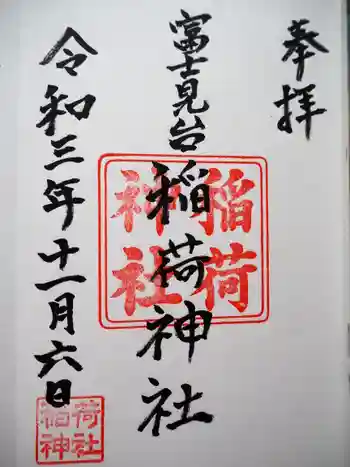 奉拝
富士見台
稲荷神社
稲荷
神社
令和三年十一月六日
稲荷
神社